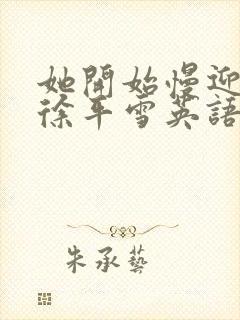 她開始慢迎
徐平雪英語
朱承藝